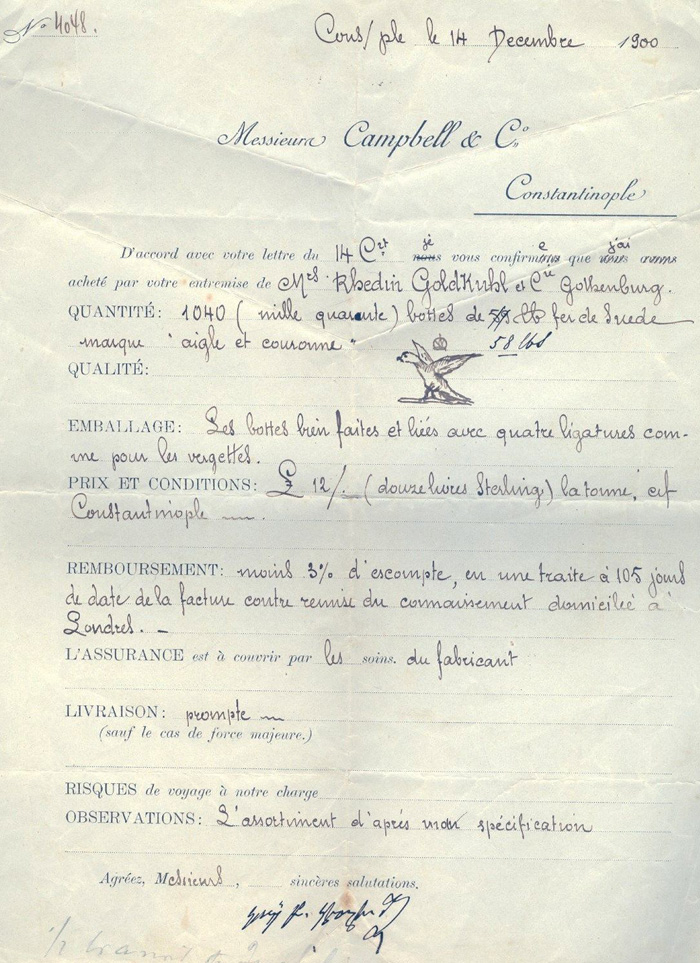 No 4048.
Cons/ple le 14 Decembre 1900
Messieurs Campbell & Co
Constantinople
je e j'ai
D'accord avec votre lettre du 14 Crt nous vous confirmons que nous avons
acheté par votre entremise de Mrs Rhedin Goldkuhl et Cie Gothenburg.
QUANTITÉ: 1040 (mille quarante) bottes de lb fer de Suede
marque "aigle et couronne" 58 lbs
QUALITÉ:
EMBALLAGE: Les bottes bien faites et liées avec quatre ligatures com-
me pour les vergettes.
PRIX ET CONDITIONS: £ 12/. (douze livres Sterling) la tonne, cif
Constantinople
REMBOURSEMENT: moins 3% d'escompte, en une traite à 105 jours
de date de la facture contre remise du connaissement domicilié à
Londres. -
L'ASSURANCE est à couvrir par les soins. du fabricant
LIVRAISON: prompte
(sauf le cas de force majeure.)
RISQUES de voyage à notre charge
OBSERVATIONS: L'assortiment d'après mon spécification
Agréez, Messieurs, sincères salutations.